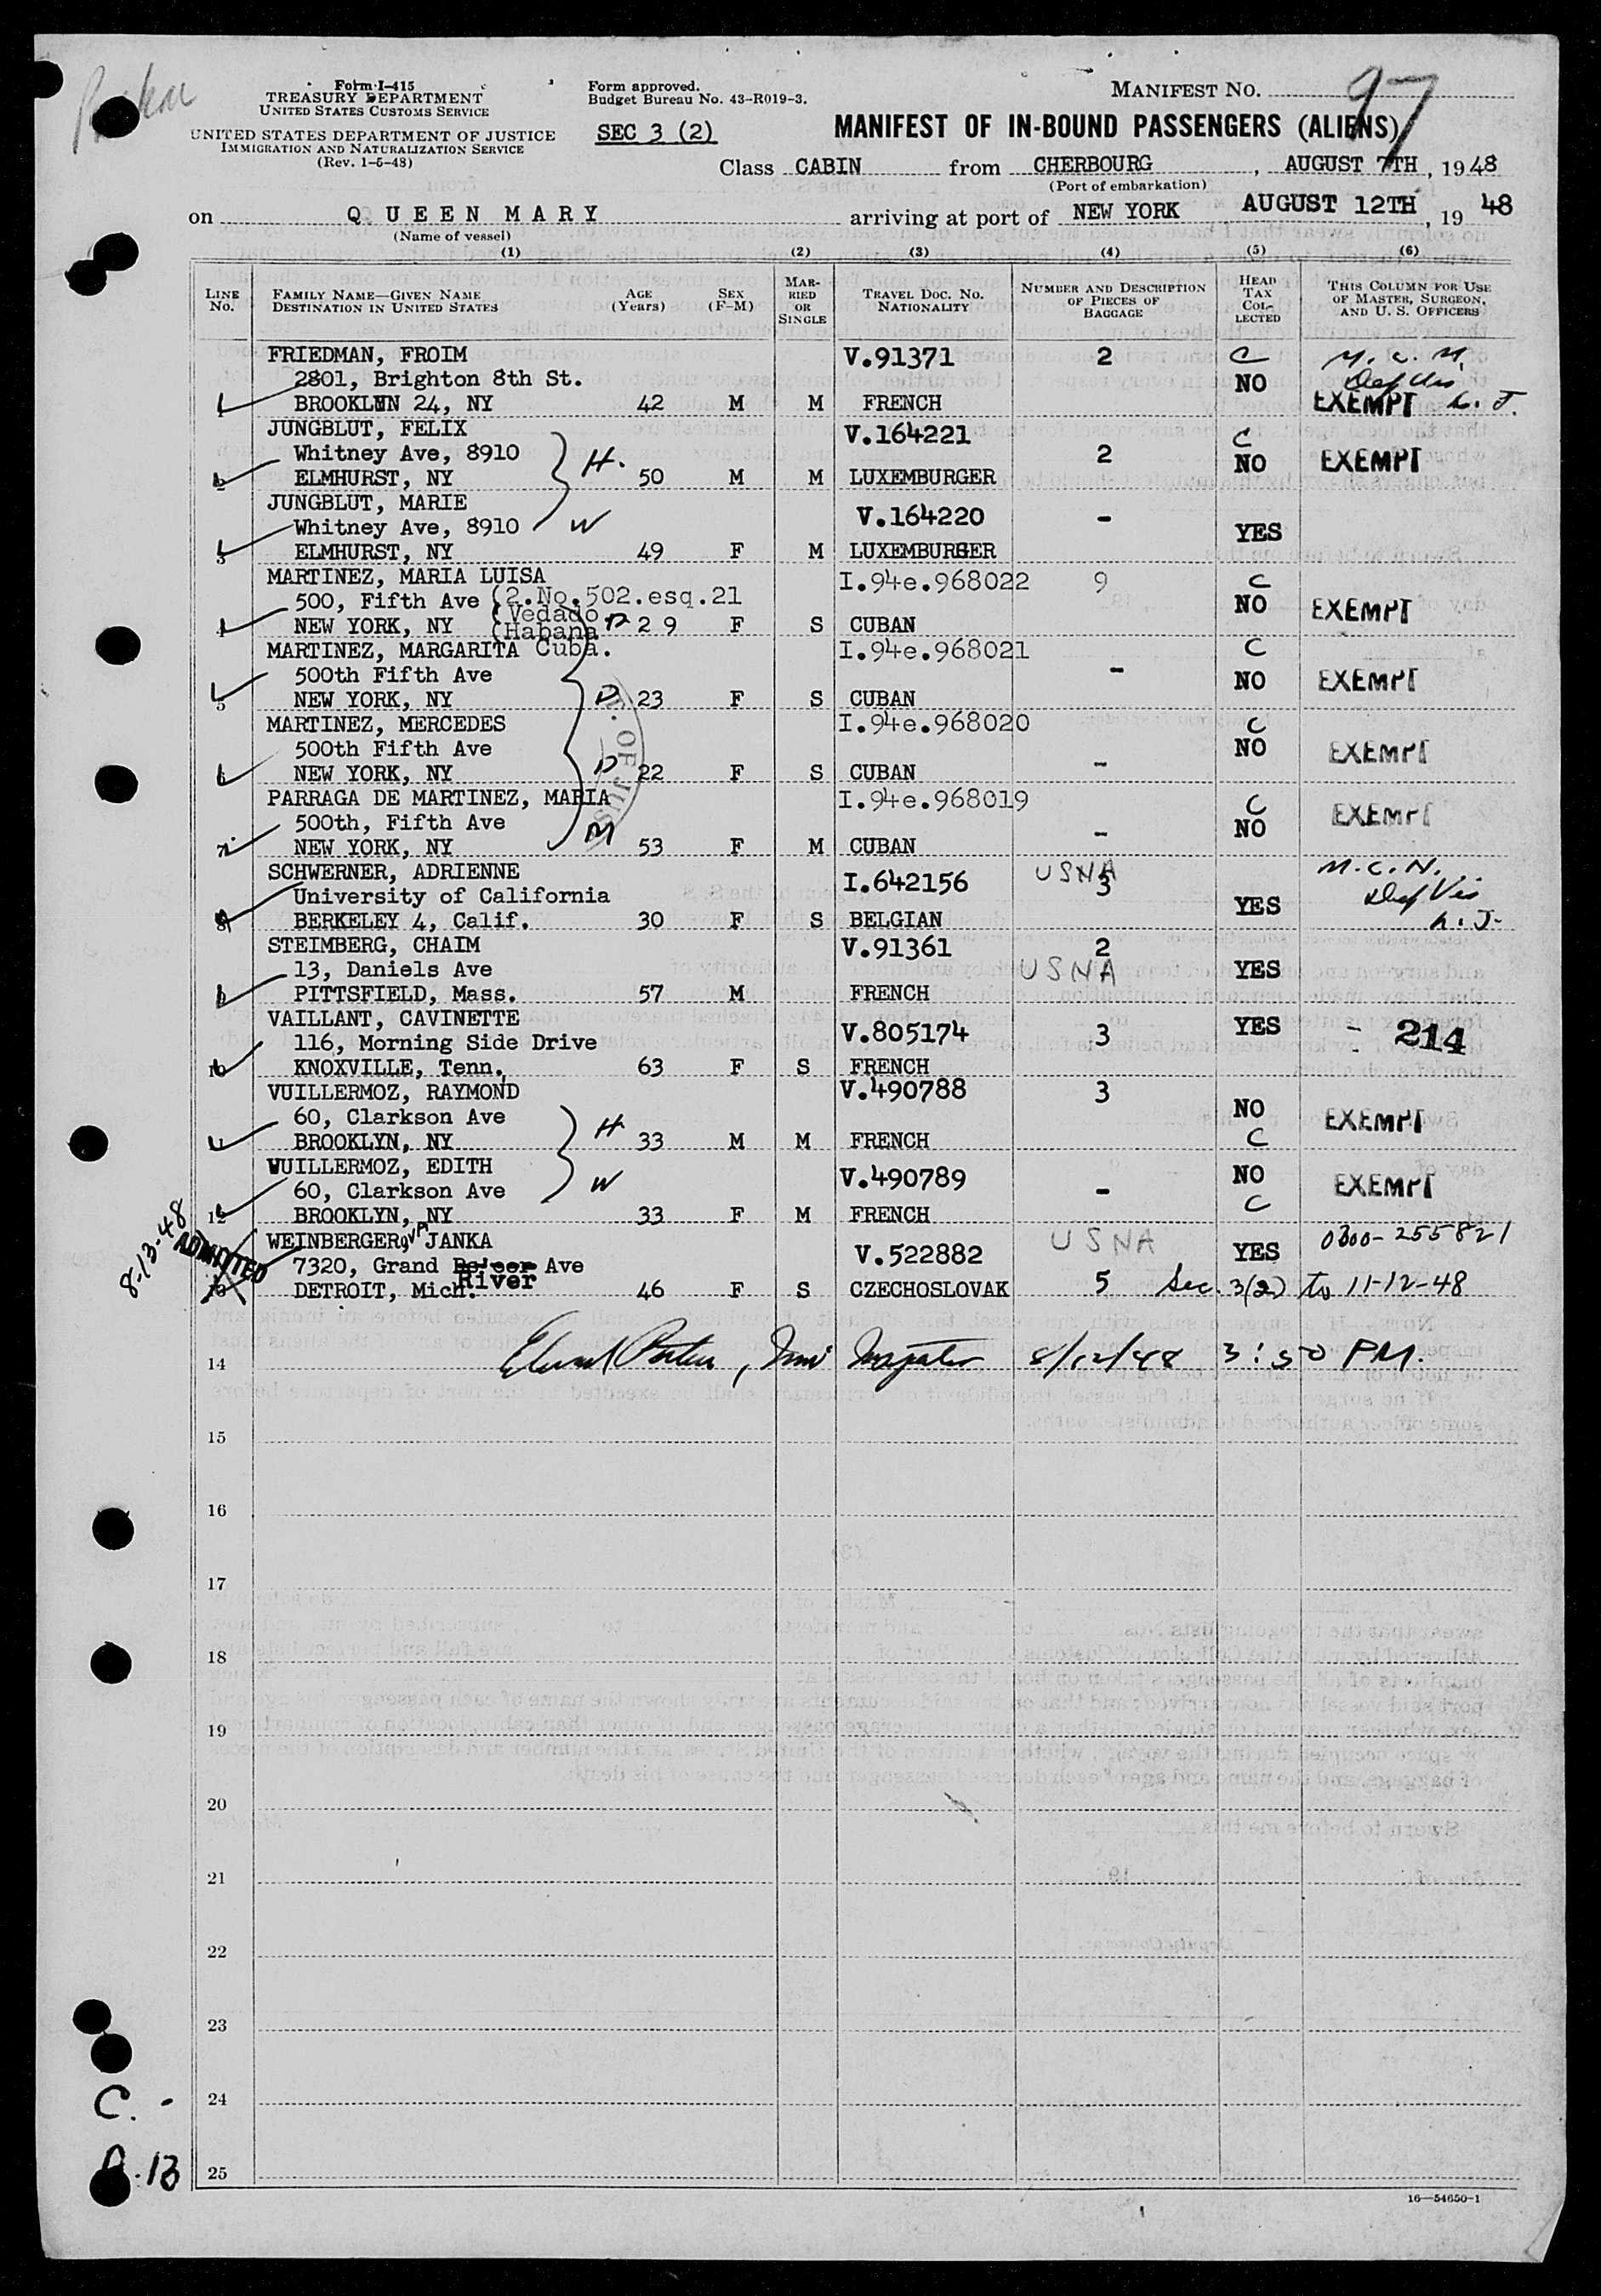 Form I-415
TREASURY DEPARTMENT
UNITED STATES CUSTOMS SERVICE
UNITED STATES DEPARTMENT OF JUSTICE
IMMIGRATION AND NATURALIZATION SERVICE
(Rev. 1-5-48)
Form approved.
Budget Bureau No. 43-R019-3.
SEC 3 (2)
MANIFEST NO. 97
MANIFEST OF IN-BOUND PASSENGERS (ALIENS)
Class CABIN from CHERBOURG, AUGUST 7TH, 1948
(Port of embarkation)
on Q UEEN MARY arriving at port of NEW YORK AUGUST 12TH, 19 48
(Name of vessel)
(1) (2) (3) (4) (5) (6)
LINE NO. FAMILY NAME—GIVEN NAME DESTINATION IN UNITED STATES AGE (Years) SEX (F-M) MARRIED OR SINGLE TRAVEL DOC. NO. NATIONALITY NUMBER AND DESCRIPTION OF PIECES OF BAGGAGE HEAD TAX COLLECTED THIS COLUMN FOR USE OF MASTER, SURGEON, AND U. S. OFFICERS
FRIEDMAN, FROIM V.91371 2 C
2801, Brighton 8th St. NO Def Vis
1 BROOKLYN 24, NY 42 M M FRENCH EXEMPT
JUNGBLUT, FELIX V.164221 C
Whitney Ave, 8910 H. 2 NO EXEMPT
2 ELMHURST, NY 50 M M LUXEMBURGER
JUNGBLUT, MARIE V.164220 -
Whitney Ave, 8910 W YES
3 ELMHURST, NY 49 F M LUXEMBURGER
MARTINEZ, MARIA LUISA I.94e.968022 9 C
500, Fifth Ave (2.No.502.esq.21 NO EXEMPT
(Vedado
4 NEW YORK, NY (Habana D 2 9 F S CUBAN
MARTINEZ, MARGARITA Cuba. I.94e.968021 C
500th Fifth Ave - NO EXEMPT
5 NEW YORK, NY D 23 F S CUBAN
MARTINEZ, MERCEDES I.94e.968020 C
500th Fifth Ave NO EXEMPT
6 NEW YORK, NY D 22 F S CUBAN -
PARRAGA DE MARTINEZ, MARIA I.94e.968019 C
500th, Fifth Ave NO EXEMPT
7 NEW YORK, NY M 53 F M CUBAN -
OF JUS
SCHWERNER, ADRIENNE I.642156 USNA 3 M.C.N.
University of California YES Def Vis
8 BERKELEY 4, Calif. 30 F S BELGIAN
STEIMBERG, CHAIM V.91361 2
13, Daniels Ave USNA YES
9 PITTSFIELD, Mass. 57 M FRENCH
VAILLANT, CAVINETTE V.805174 3 YES - 214
116, Morning Side Drive
10 KNOXVILLE, Tenn. 63 F S FRENCH
VUILLERMOZ, RAYMOND V.490788 3
60, Clarkson Ave H NO EXEMPT
11 BROOKLYN, NY 33 M M FRENCH C
VUILLERMOZ, EDITH V.490789 NO EXEMPT
60, Clarkson Ave W - C
12 BROOKLYN, NY 33 F M FRENCH
8-13-48
ADMITTED
WEINBERGEROVA JANKA V.522882 USNA YES 0300-255821
7320, Grand River Ave
13 DETROIT, Mich. 46 F S CZECHOSLOVAK 5 Sec. 3(2) to 11-12-48
14 8/12/48 3:50 PM.
15
16
17
18
19
20
21
22
23
24
25
C. -
A. 13
16—54650-1